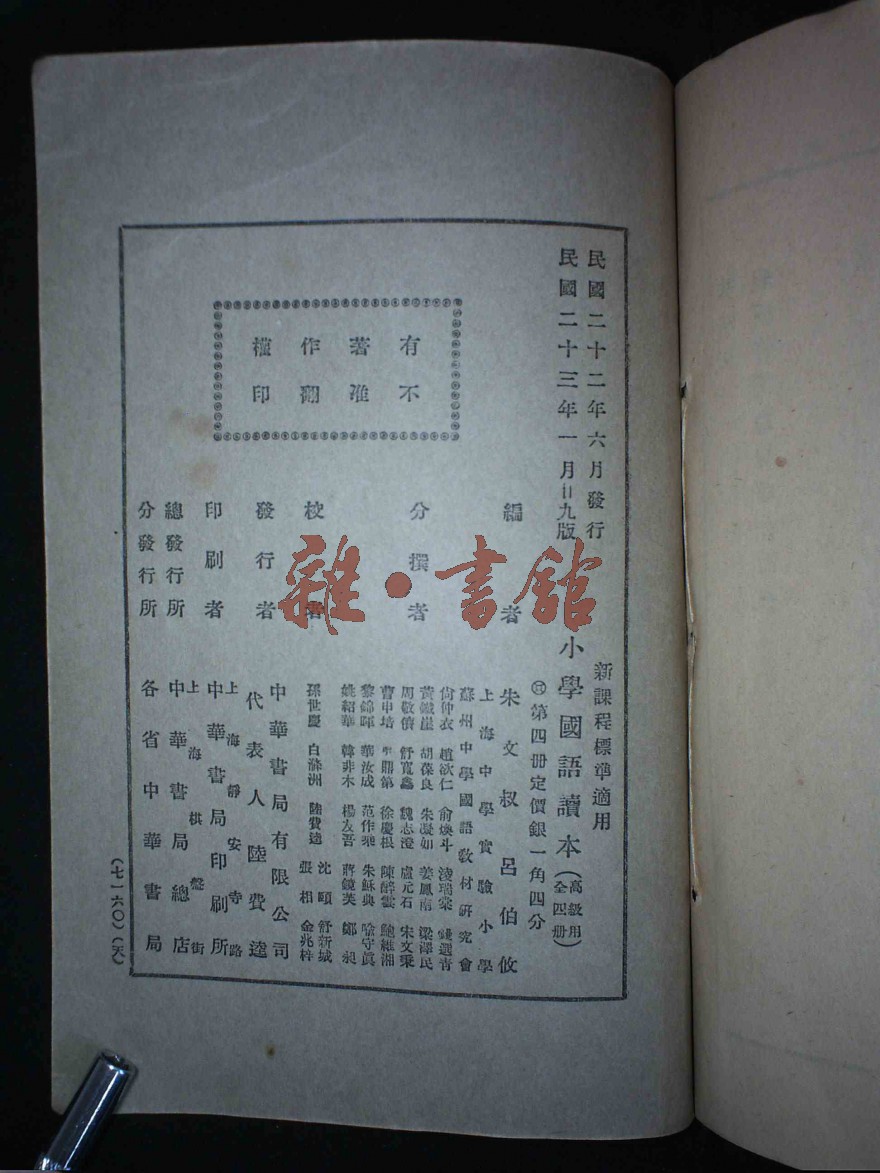 民國二十二年六月發行
民國二十三年一月廿九版
新課程標準適用
小學國語讀本（高級用 全四册）
第四册定價銀一角四分
編者
朱文叔 呂伯攸
分撰者
上海中學實驗小學
蘇州中學國語教材研究會
尙仲衣 趙欲仁 俞煥斗 淩瑞棠 鍾選青
黃鐵崖 胡葆良 朱凝如 姜鳳南 梁澤民
周敬儕 舒寬鑫 魏志澄 盧元石 宋文秉
曹申培 李鼎第 徐慶根 陳醉雲 鮑維湘
黎錦暉 華汝成 范作乘 朱穌典 喻守眞
姚紹華 韓非木 楊友吾 蔣鏡芙 鄭昶
校者
孫世慶 白滌洲 陸費逵 沈頤 舒新城
張相 金兆梓
發行者
中華書局有限公司
代表人 陸費逵
印刷者
上海靜安寺路
中華書局印刷所
總發行所
上海棋盤街
中華書局總店
分發行所
各省中華書局
有著作權
不准翻印
（七一六〇）（天）
雜·書館